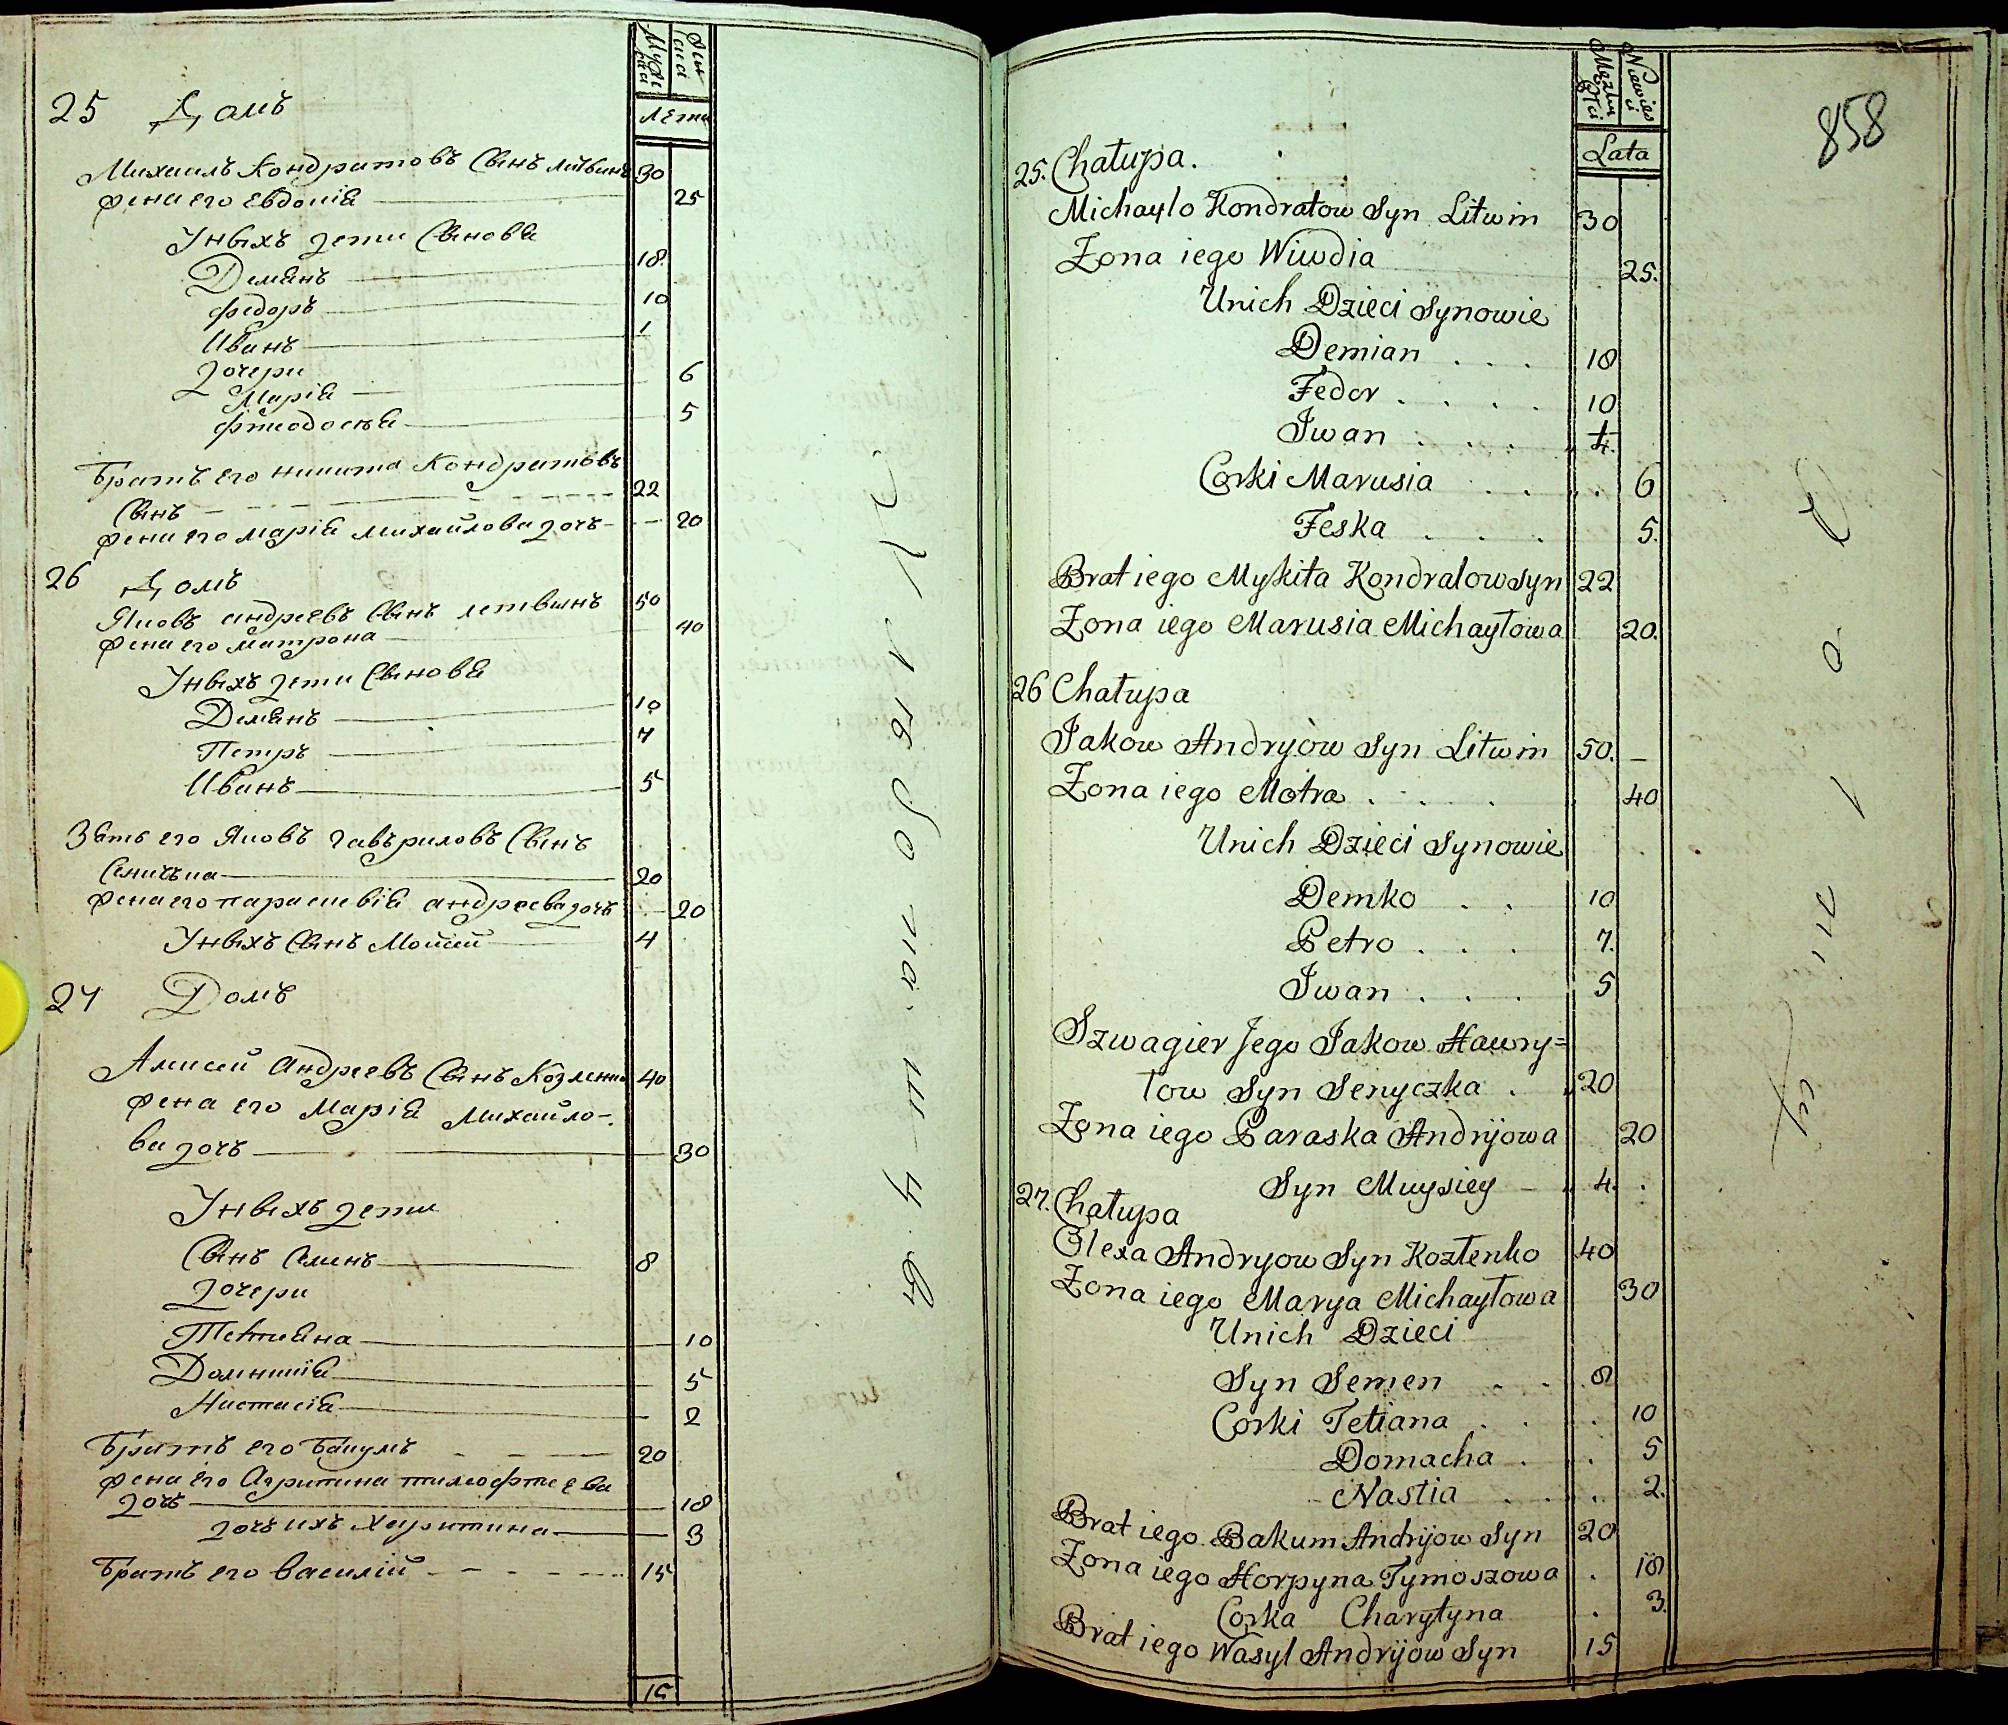 Мужска
Женска
Лета
25 Домъ
Михаилъ Кондратовъ сынъ литвинъ 30
жена его Евдокія 25
У нихъ дети сыновя
Демянъ 18
Федоръ 10
Иванъ 1
дочери
Марія 6
Феодосья 5
Братъ его никита Кондратовъ
сынъ 22
жена его марія михайлова дочь 20
26 Домъ
Яковъ андреевъ сынъ летвинъ 50
жена его матрона 40
У нихъ дети сыновя
Демянъ 10
Петръ 7
Иванъ 5
Зять его Яковъ гавъриловъ сынъ
сеничка 20
жена его параскевія андреева дочь 20
У нихъ сынъ Мойсей 4
27 Домъ
Алексей Андреевъ сынъ Козленко 40
жена его Марія Михайло-
ва дочь 30
У нихъ дети
сынъ семенъ 8
дочери
Тетияна 10
Домникія 5
Настасія 2
Братъ его бакумъ 20
жена его Агрипина тимофтеева
дочь 18
дочь ихъ Харитина 3
братъ его василій 15
15
Męzkiey Płci
Niewiesciey
Lata
858
25. Chałupa.
Michayło Kondratow Syn Litwin 30
Żona iego Wiwdia 25.
Unich Dzieci Synowie
Demian . . . 18
Fedor . . . . 10
Iwan . . . . 1/4.
Corki Marusia . . . . 6
Feska . . . 5.
Brat iego Mykita Kondratow Syn 22
Żona iego Marusia Michayłowa 20.
26 Chałupa
Jakow Andryiow Syn Litwin 50. –
Żona iego Motra . . . . 40
Unich Dzieci Synowie
Demko . . 10
Petro . . . 7.
Iwan . . . 5
Szwagier Jego Jakow Hawry=
łow Syn Senyczka . 20
Żona iego Paraska Andrijowa 20
Syn Muysiey – 4.
27. Chałupa
Olexa Andryow Syn Kozłenko 40
Żona iego Marya Michayłowa 30
Unich Dzieci
Syn Semen . . . 8
Corki Tetiana . . . 10
Domacha . . 5
Nastia . . . . 2.
Brat iego Bakum Andrijow Syn 20
Żona iego Horpyna Tymoszowa . 18
Corka Charytyna . 3.
Brat iego Wasyl Andrijow Syn 15